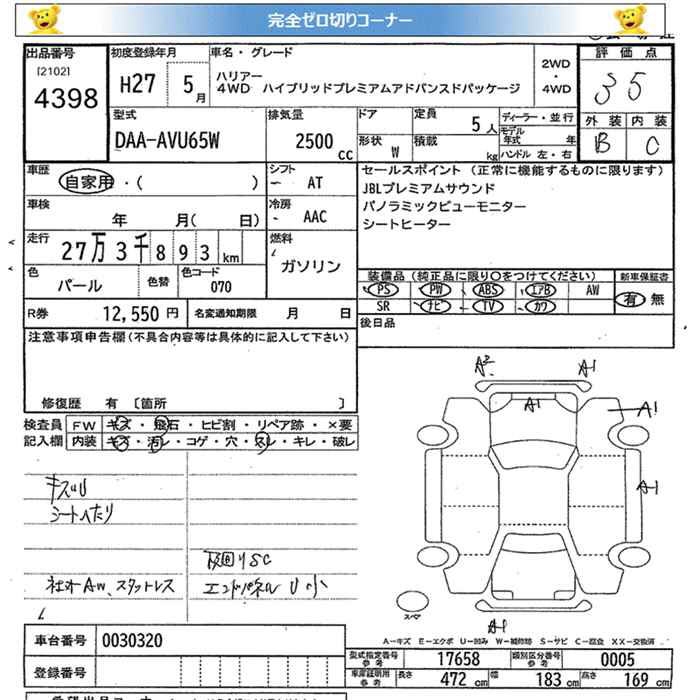 完全ゼロ切りコーナー
出品番号 初度登録年月 車名・グレード 評価点
[2102] 4398 H27 5月 ハリアー 2WD・4WD 35
4WD ハイブリッドプレミアムアドバンスドパッケージ
外装 内装
B C
型式 排気量 ドア 定員 5人 ディーラー・並行
DAA-AVU65W 2500CC 形状 W 積載 kg モデル年式 年
ハンドル 左・右
車歴 シフト セールスポイント(正常に機能するものに限ります)
自家用・( ) AT JBLプレミアムサウンド
車検 冷房 パノラミックビューモニター
年 月( 日) AAC シートヒーター
走行 燃料
27万3千893km ガソリン
色 色替 色コード 装備品(純正品に限り○をつけてください) 新車保証書
パール 070 PS PW ABS エアB AW 有 無
SR ナビ TV カワ
R券 12,550円 名変通知期限 月 日 後日品
注意事項申告欄(不具合内容等は具体的に記入して下さい)
修復歴 有 〔箇所 〕
検査員 FW キズ・飛石・ヒビ割・リペア跡・×要
記入欄 内装 キズ・汚レ・コゲ・穴・スレ・キレ・破レ
A2 A1
A1 A1
A1
キズU
シートへたり
社外AW、スタットレス エンドパネルU小
スペア
A1
A-キズ E-エクボ U-凹み W-補修跡 S-サビ C-腐食 XX-交換済
車台番号 0030320
型式指定番号 参考 17658 類別区分番号 参考 0005
登録番号 車庫証明用 参考 長さ 472cm 幅 183cm 高さ 169cm